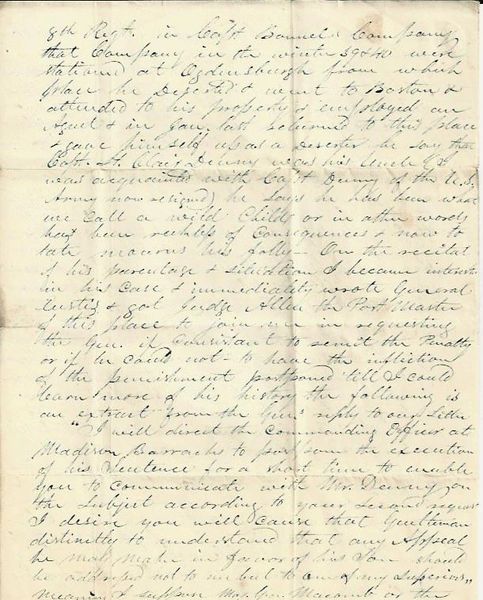 8th Regt. in Capt Bonnels Company
that Company in the winter 39 & 40 were
stationed at Ogdensburgh from which
place he Deserted & went to Boston &
attended to his property & employed an
Agent & in Jan. last returned to this place
& gave himself up as a Deserter he say that
Capt. St. Clair Denny was his Uncle (I
was acquainted with Capt Denny of the U.S.
Army now resigned) he says he has been what
we call a wild Child or in other words
has been reckless of Consequences & now to
late mourns his folly — On the recital
of his parentage & situation I became interested
in his case & immediately wrote General
Eustis & got Judge Allen the Post Master
of this place to join me in requesting
the Gen. if Consistant to remit the Penalty
or if he could not — to have the infliction
of the punishment postponed till I could
learn more of his history the following is
an extract from the Gen's reply to our Letter
"I will direct the Commanding Officer at
Madison Barracks to postpone the execution
of his Sentence for a short time to enable
you to communicate with Mr. Denny on
the Subject according to your second request
I desire you will cause that Gentleman
distinctly to understand that any Appeal
he may make in favor of his Son should
be addressed not to me but to one of my Superiors"
meaning I suppose Maj. Gen Macomb or the